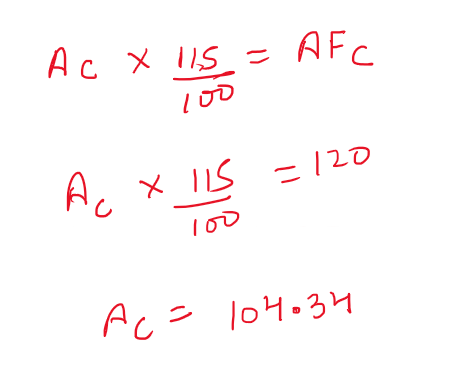 Ac × 115/100 = AFc
Ac × 115/100 = 120
Ac = 104.34